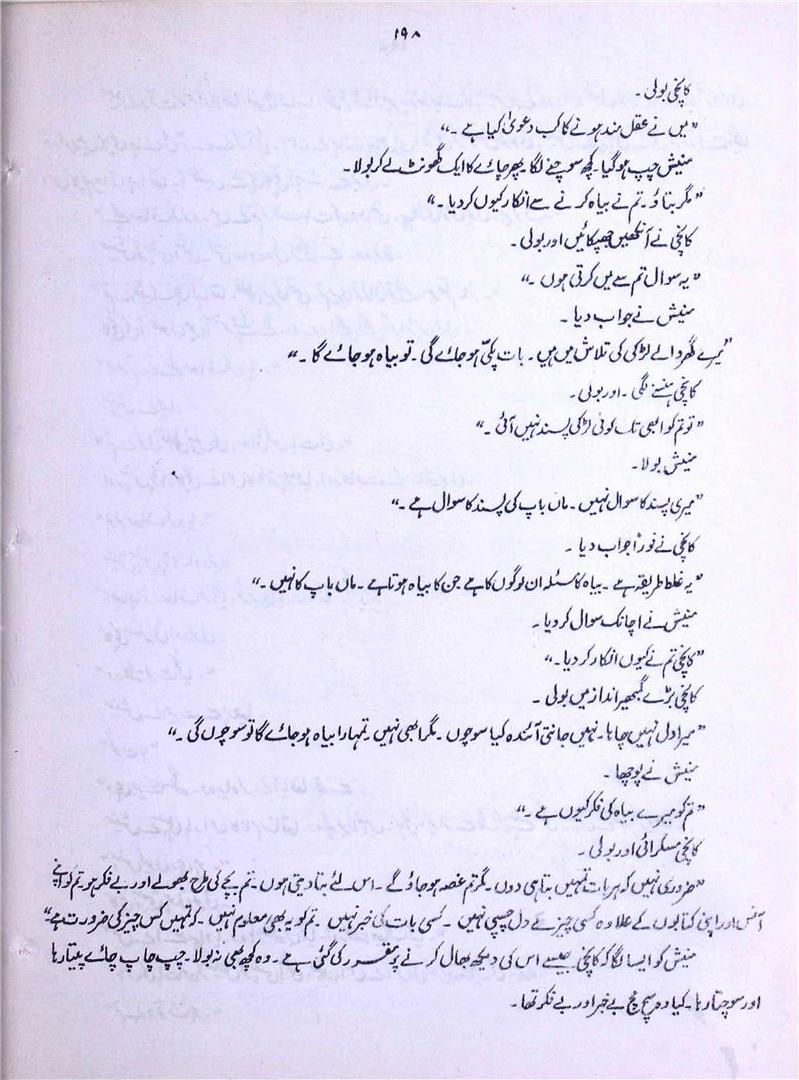 ۱۹۸
کانچی بولی۔
”میں نے عقل مند ہونے کا کب دعویٰ کیا ہے۔“
منیش چپ ہو گیا۔ کچھ سوچنے لگا پھر چائے کا ایک گھونٹ لے کر بولا۔
”مگر بتاؤ۔ تم نے بیاہ کرنے سے انکار کیوں کر دیا۔“
کانچی نے آنکھیں جھپکائیں اور بولی۔
”یہ سوال تم سے میں کرتی ہوں۔“
منیش نے جواب دیا۔
”میرے گھر والے لڑکی کی تلاش میں ہیں۔ بات پکّی ہو جائے گی۔ تو بیاہ ہو جائے گا۔“
کانچی ہنسنے لگی۔ اور بولی۔
”تو تم کو ابھی تک کوئی لڑکی پسند نہیں آئی۔“
منیش بولا۔
”میری پسند کا سوال نہیں۔ ماں باپ کی پسند کا سوال ہے۔“
کانچی نے فوراً جواب دیا۔
”یہ غلط طریقہ ہے۔ بیاہ کا مسئلہ ان لوگوں کا ہے جن کا بیاہ ہوتا ہے۔ ماں باپ کا نہیں۔“
منیش نے اچانک سوال کر دیا۔
”کانچی تم نے کیوں انکار کر دیا۔“
کانچی بڑے گمبھیر انداز میں بولی۔
”میرا دل نہیں چاہا۔ نہیں جانتی آئندہ کیا سوچوں۔ مگر ابھی نہیں۔ تمہارا بیاہ ہو جائے گا تو سوچوں گی۔“
منیش نے پوچھا۔
”تم کو میرے بیاہ کی فکر کیوں ہے۔“
کانچی مسکرائی اور بولی۔
”ضروری نہیں کہ ہر بات تمہیں بتا ہی دوں۔ مگر تم غصہ ہو جاؤ گے۔ اس لئے بتا دیتی ہوں۔ تم بچے کی طرح بھولے اور بے فکر ہو۔ تم کو اپنے
آفس اور اپنی کتابوں کے علاوہ کسی چیز سے دل چسپی نہیں۔ کسی بات کی خبر نہیں۔ تم کو یہ بھی معلوم نہیں۔ کہ تمہیں کس چیز کی ضرورت ہے“
منیش کو ایسا لگا کہ کانچی جیسے اس کی دیکھ بھال کرنے پر مقرر کی گئی ہے۔ وہ کچھ بھی نہ بولا۔ چپ چاپ چائے پیتا رہا
اور سوچتا رہا۔ کیا وہ سچ مچ بے خبر اور بے فکر تھا۔